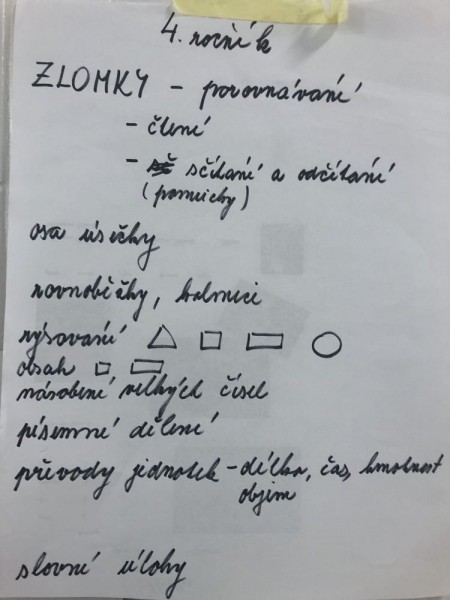 4. ročník
ZLOMKY - porovnávání
- čtení
- sčítání a odčítání
(pomůcky)
osa úsečky
rovnoběžky, kolmice
rýsování
obsah
násobení velkých čísel
písemné dělení
převody jednotek - délka, čas, hmotnost
objem
slovní úlohy